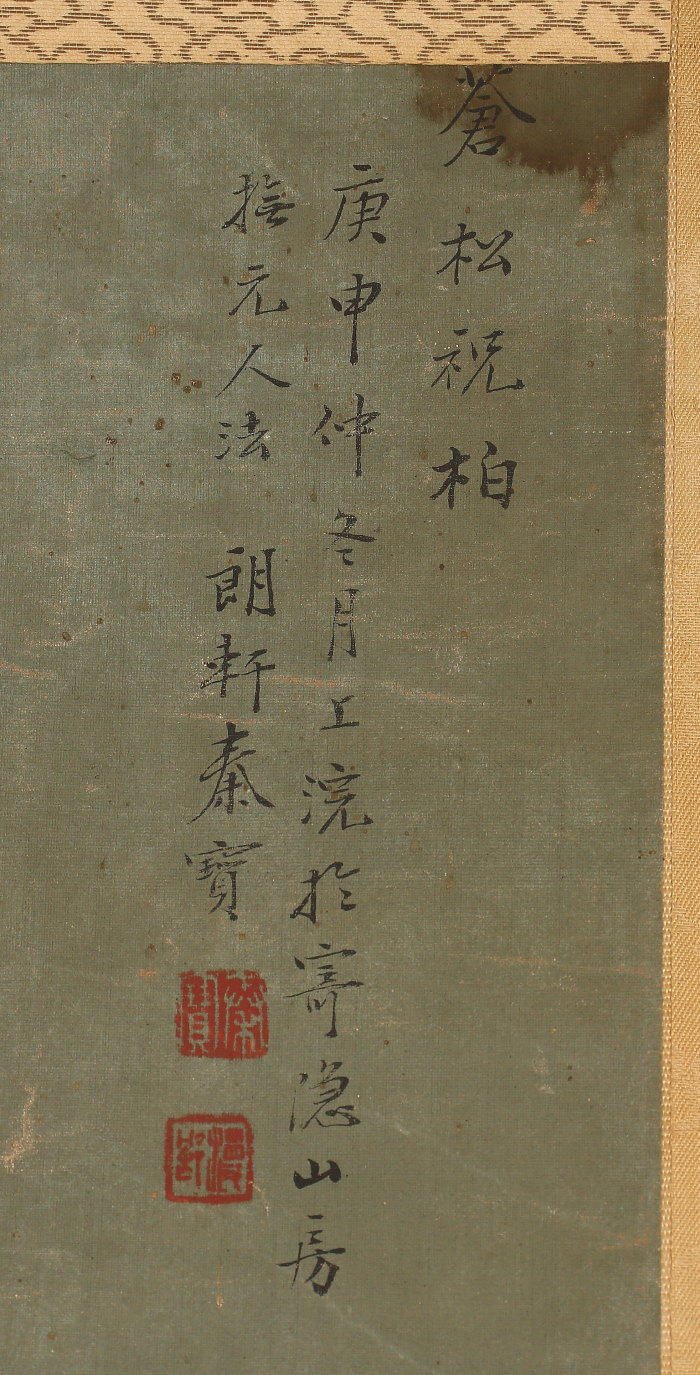 蒼松祝柏
庚申仲冬月上浣於寄隐山房
撫元人法 朗軒秦寶
秦寶